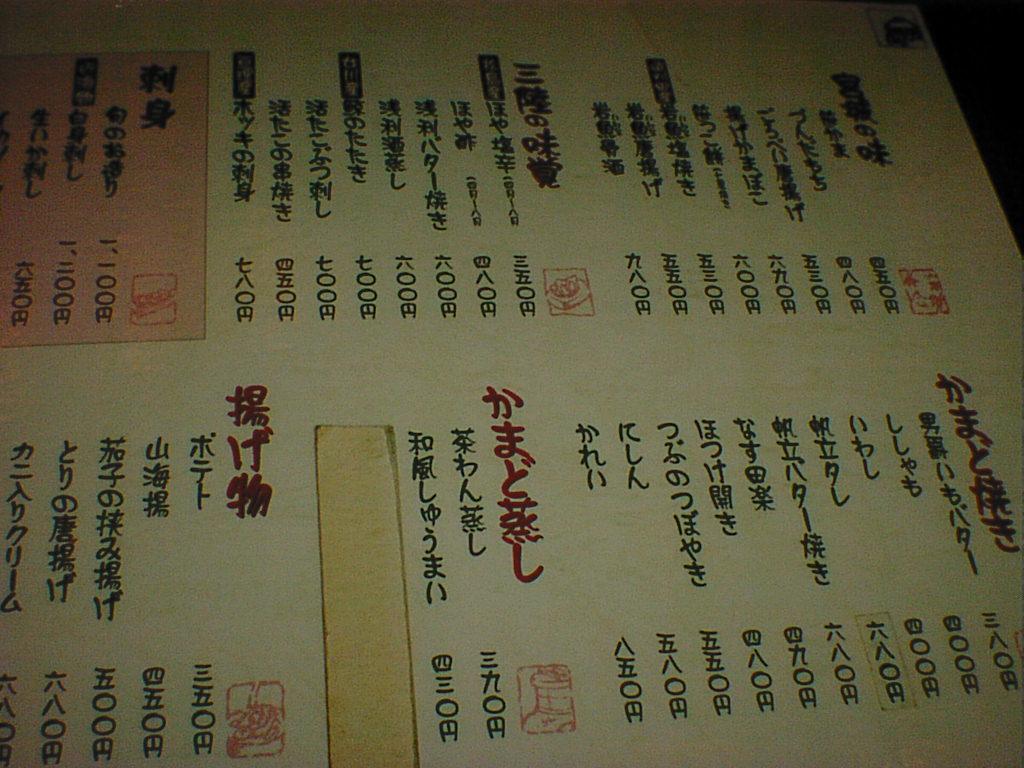 宮城の味
笹かま 四五〇円
づんだもち 四八〇円
唐揚げ 五三〇円
揚げかまぼこ 六九〇円
六〇〇円
岩魚塩焼き 五三〇円
岩魚唐揚げ 五五〇円
岩魚骨酒 九八〇円
三陸の味覚
ほや塩辛 三五〇円
ほや酢 四八〇円
浅利バター焼き 六〇〇円
浅利酒蒸し 六〇〇円
鮫のたたき 七〇〇円
活たこぶつ刺し 七〇〇円
活たこの串焼き 四五〇円
ホッキの刺身 七八〇円
刺身
旬のお造り 一、一〇〇円
白身刺し 一、二〇〇円
生いか刺し 六五〇円
かまど焼き
男爵いもバター 三八〇円
ししゃも 四〇〇円
いわし 四〇〇円
帆立タレ 六八〇円
帆立バター焼き 六八〇円
なす田楽 四九〇円
ほっけ開き 四八〇円
つぶのつぼやき 五五〇円
にしん 五八〇円
かれい 八五〇円
かまど蒸し
茶わん蒸し 三九〇円
和風しゅうまい 四三〇円
揚げ物
ポテト 三五〇円
山海揚 四五〇円
茄子の挟み揚げ 五〇〇円
とりの唐揚げ 六八〇円
カニ入りクリーム 六八〇円